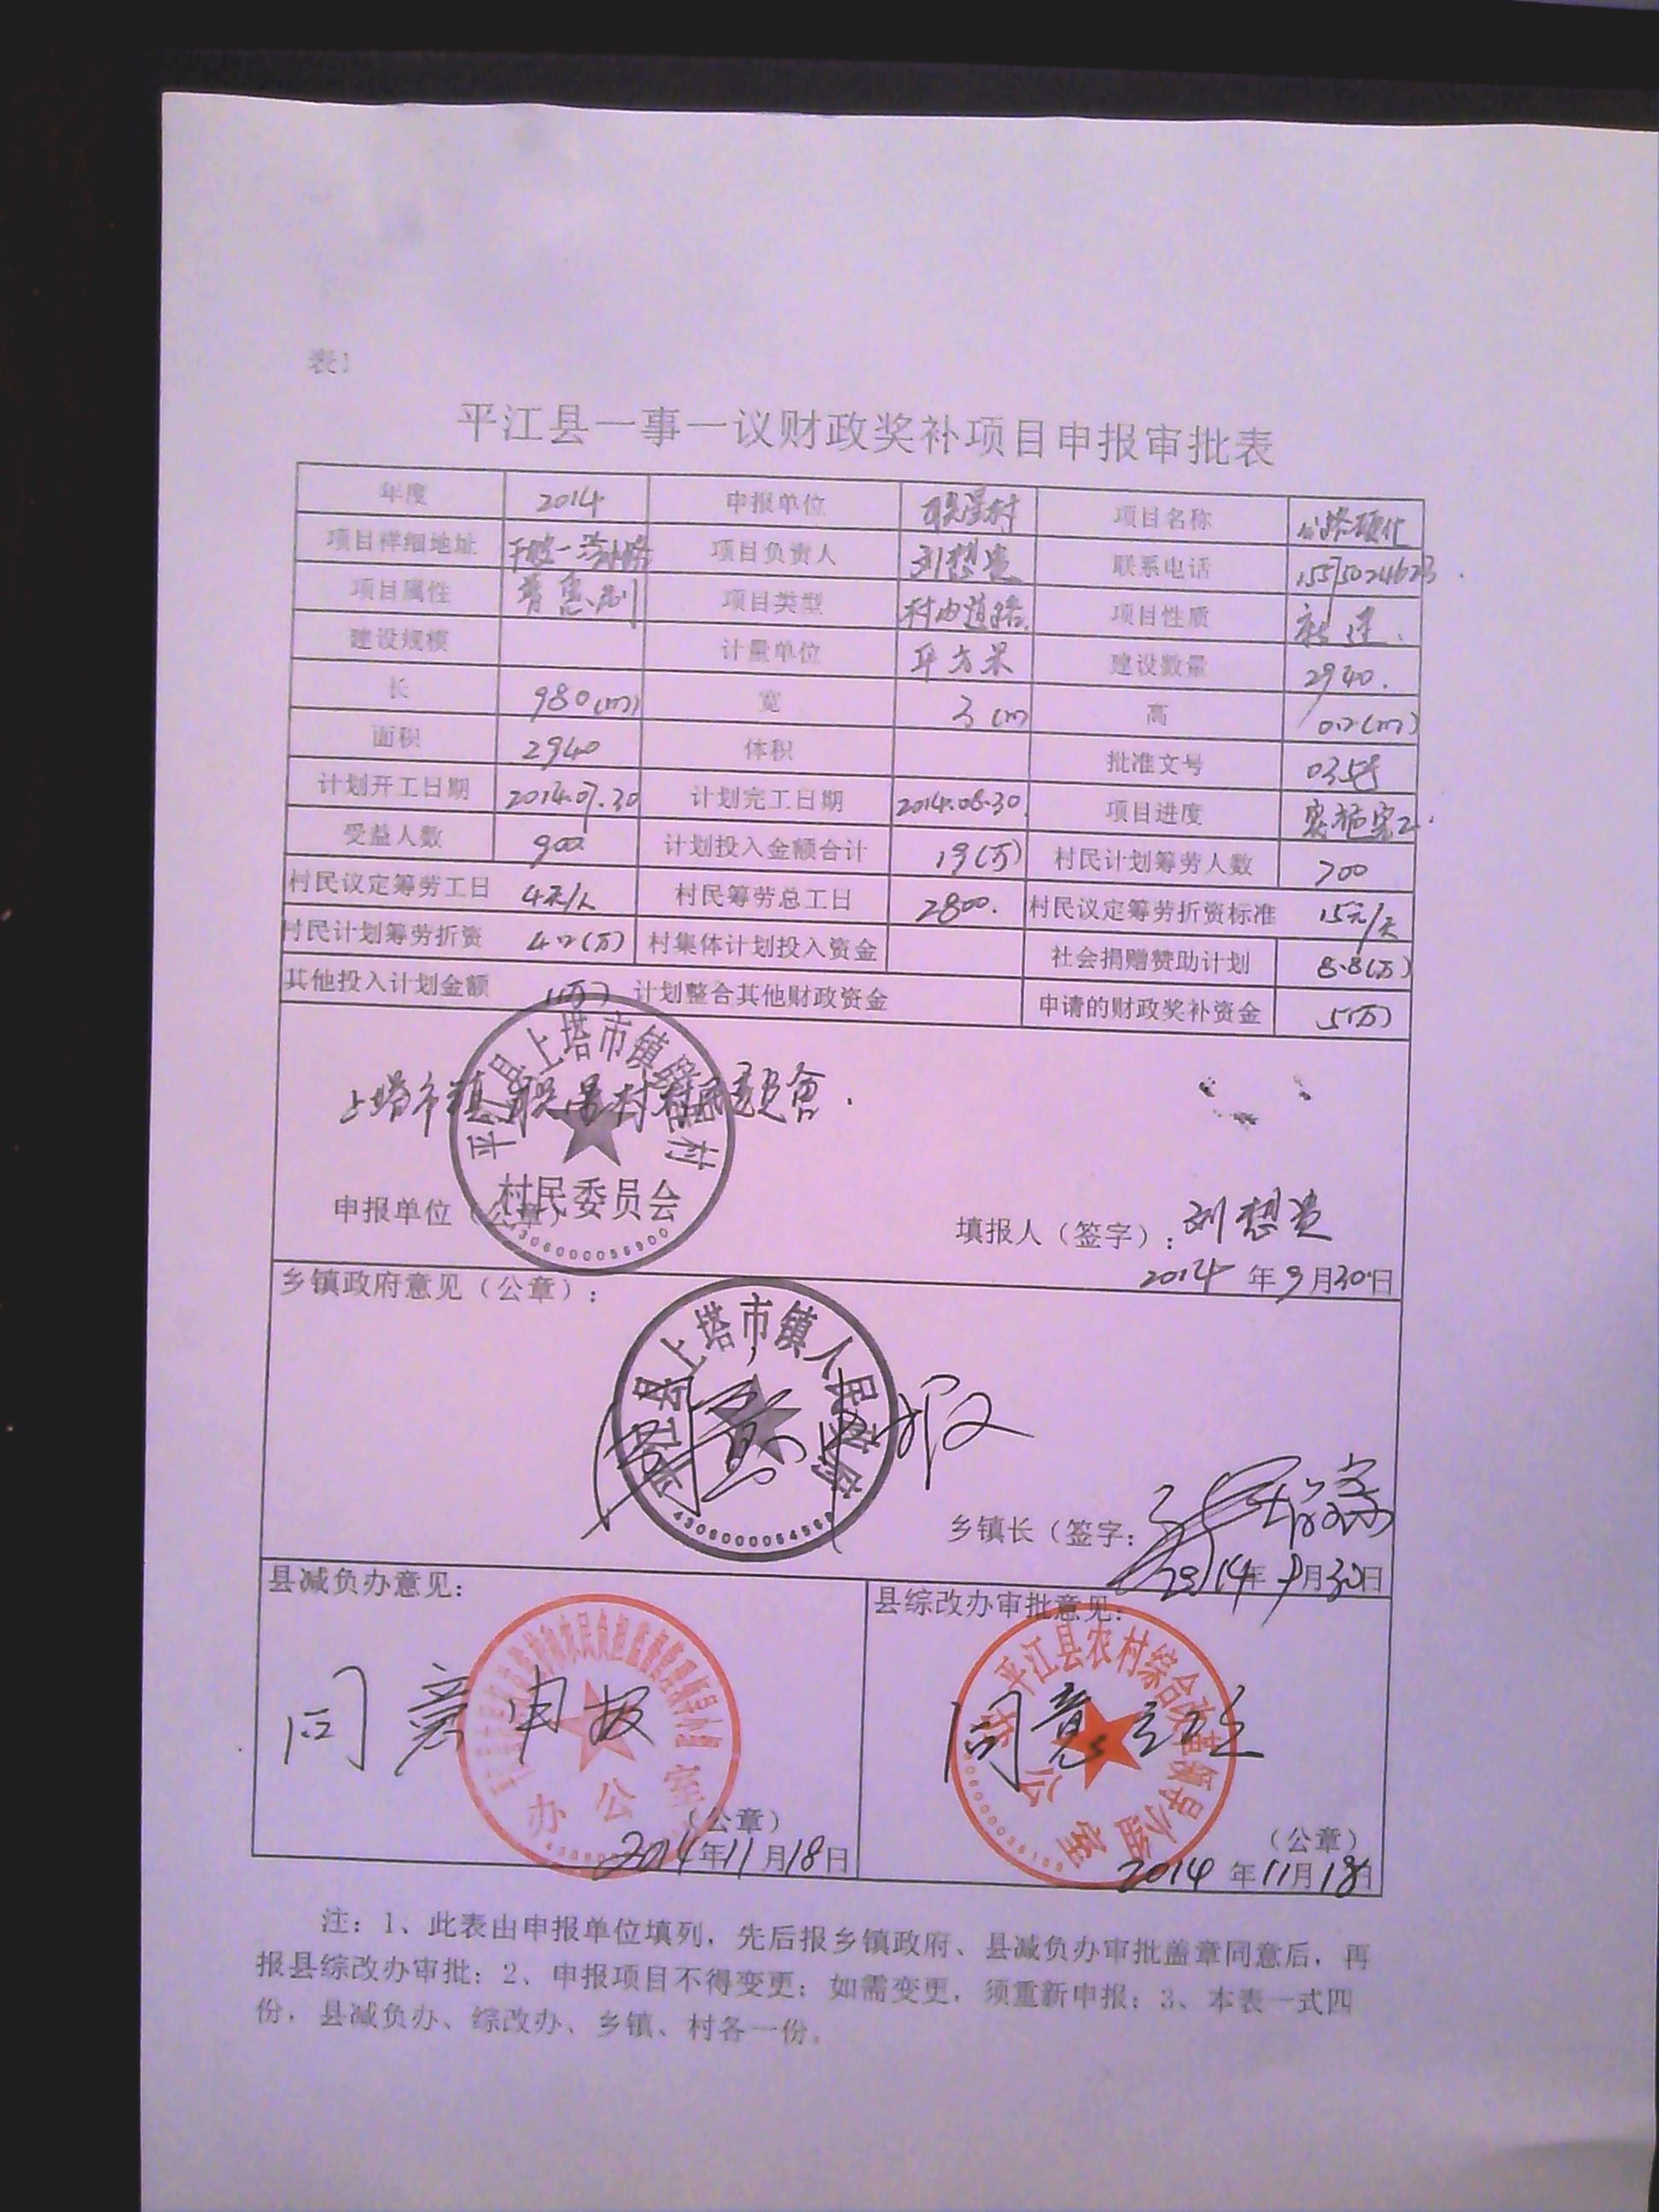 表1
平江县一事一议财政奖补项目申报审批表
年度 2014 申报单位 联星村 项目名称 公路硬化
项目祥细地址 项目负责人 刘想贵 联系电话
项目属性 普惠制 项目类型 村内道路 项目性质 新建
建设规模 计量单位 平方米 建设数量 2940.
长 980(m) 宽 3(m) 高 0.2(m)
面积 2940 体积 批准文号 035号
计划开工日期 2014.07.30 计划完工日期 2014.08.30 项目进度 实施完工
受益人数 900 计划投入金额合计 19(万) 村民计划筹劳人数 700
村民议定筹劳工日 4天/人 村民筹劳总工日 2800. 村民议定筹劳折资标准 15元/天
村民计划筹劳折资 4.2(万) 村集体计划投入资金 社会捐赠赞助计划 8.8(万)
其他投入计划金额 1(万) 计划整合其他财政资金 申请的财政奖补资金 5(万)
平江县上塔市镇联星村
上塔市镇联星村村民委员会.
村民委员会
申报单位（公章） 填报人（签字）：刘想贵
2014 年 9 月 30 日
乡镇政府意见（公章）：
平江县上塔市镇人民政府
同意上报
乡镇长（签字：
2014 年 9 月 30 日
县减负办意见： 县综改办审批意见：
平江县农村综合改革领导小组办公室
同意申报 同意
办公室
（公章） （公章）
2014 年 11 月 18 日 2014 年 11 月 18 日
注：1、此表由申报单位填列，先后报乡镇政府、县减负办审批盖章同意后，再
报县综改办审批；2、申报项目不得变更；如需变更，须重新申报；3、本表一式四
份，县减负办、综改办、乡镇、村各一份。